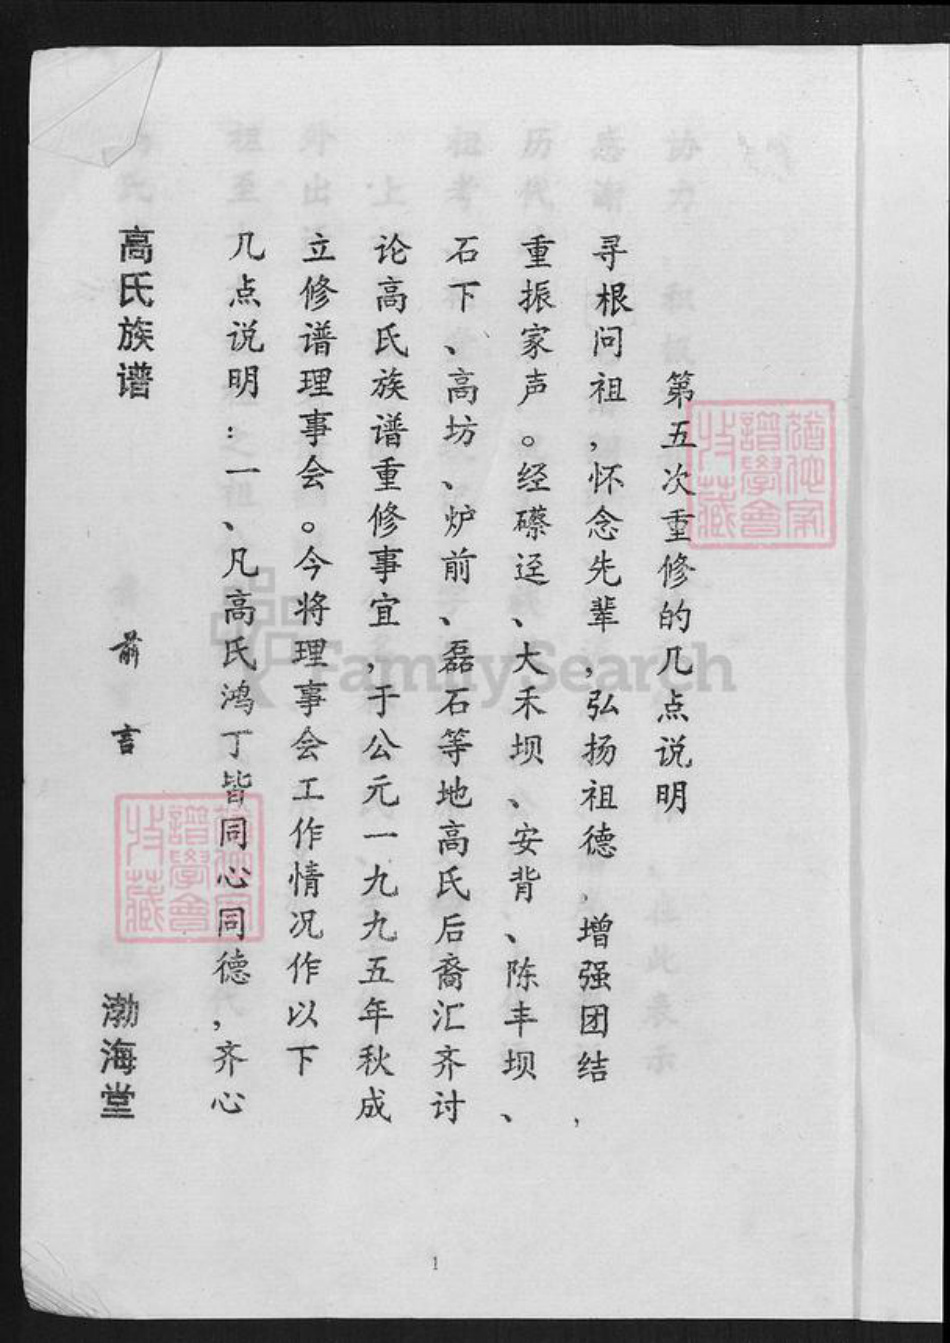 第五次重修的几点说明
寻根问祖,怀念先辈,弘扬祖德,增强团结,
重振家声。经礤迳、大禾坝、安背、陈丰坝、
石下、高坊、炉前、磊石等地高氏后裔汇齐讨
论高氏族谱重修事宜,于公元一九九五年秋成
立修谱理事会。今将理事会工作情况作以下
几点说明:一、凡高氏鸿丁皆同心同德,齐心
高氏族谱 前言 渤海堂
1
FamilySearch